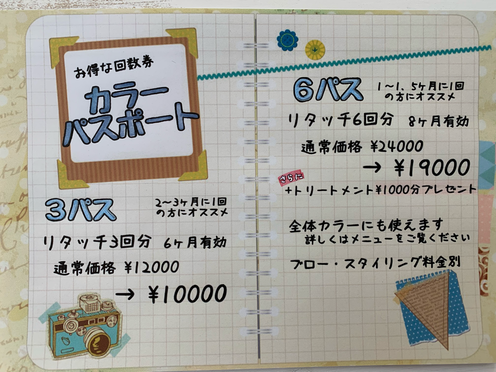 お得な回数券
カラー
パスポート
3パス
2〜3ヶ月に1回
の方にオススメ
リタッチ3回分 6ヶ月有効
通常価格 ¥12000
→ ¥10000
6パス
1〜1.5ヶ月に1回
の方にオススメ
リタッチ6回分 8ヶ月有効
通常価格 ¥24000
→ ¥19000
さらに
+トリートメント¥1000分プレゼント
全体カラーにも使えます
詳しくはメニューをご覧ください
ブロー・スタイリング料金別